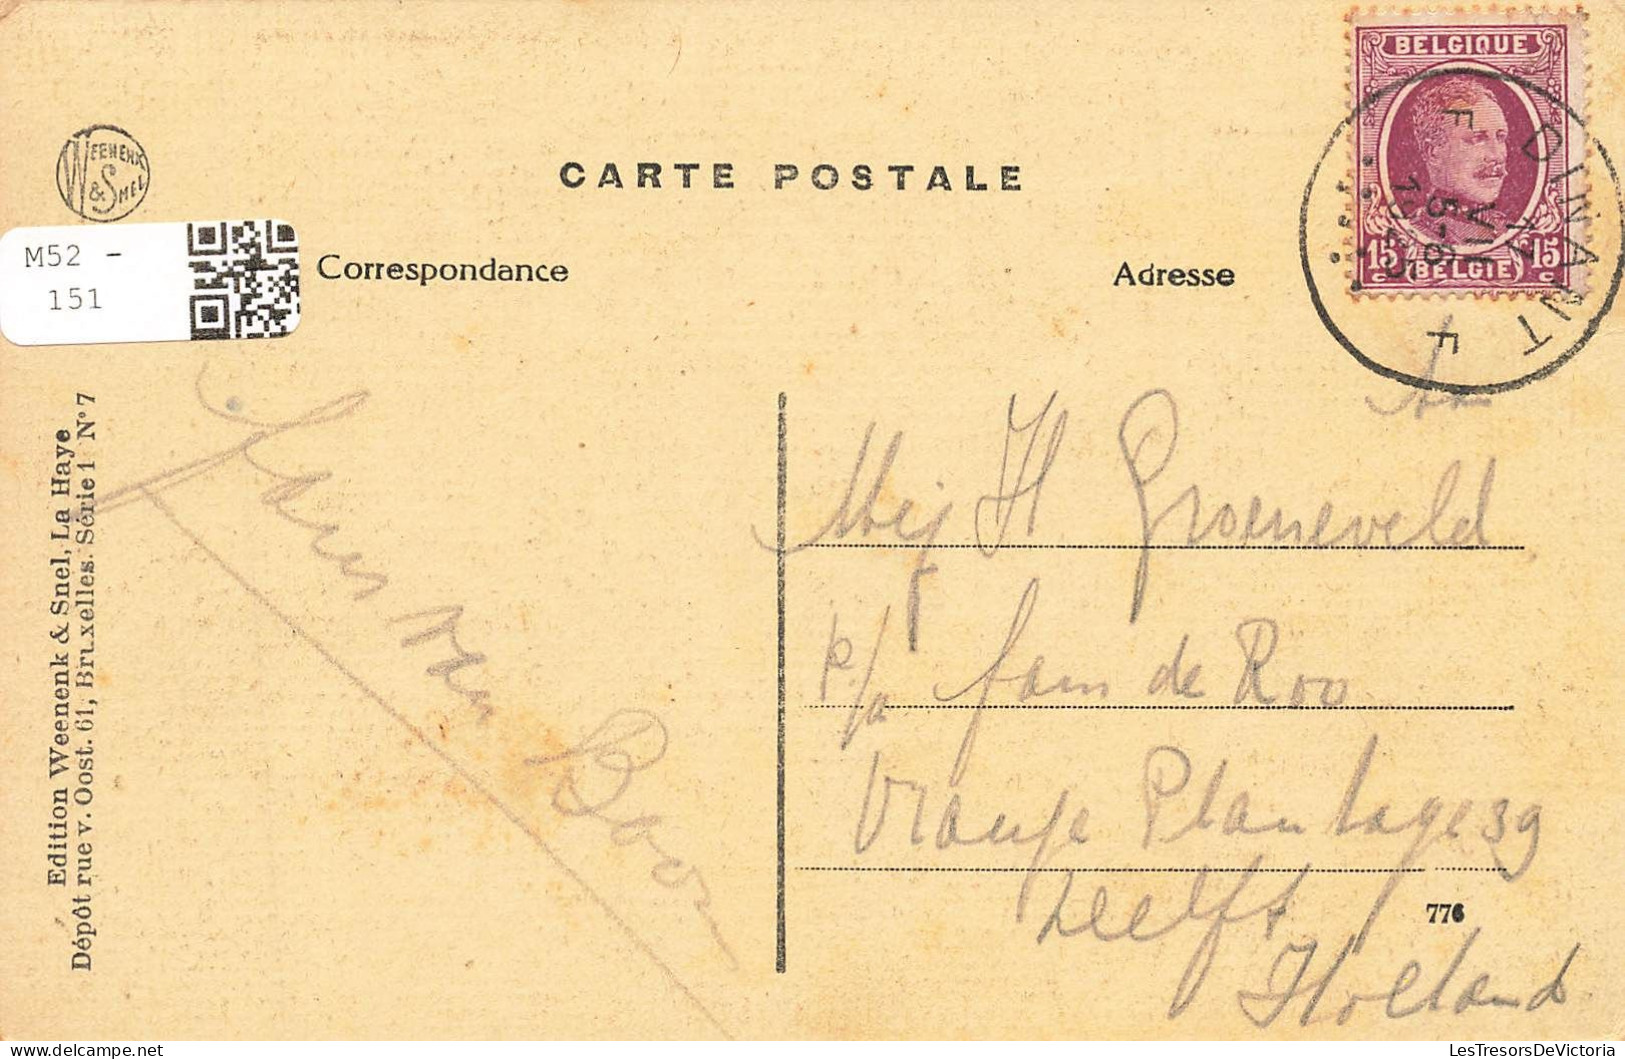 WEENENK
& SNEL
CARTE POSTALE
M52 -
151
Correspondance
Adresse
BELGIQUE
15 15
c BELGIE c
DINANT
F F
17
VII
5-6
Edition Weenenk & Snel, La Haye
Dépôt rue v. Oost. 61, Bruxelles. Série 1 N° 7
van
Boor
An
Mej H Groeneveld
p/a fam de Roo
Oranje Plantage 39
Delft
Holland
776
LesTresorsDeVictoria